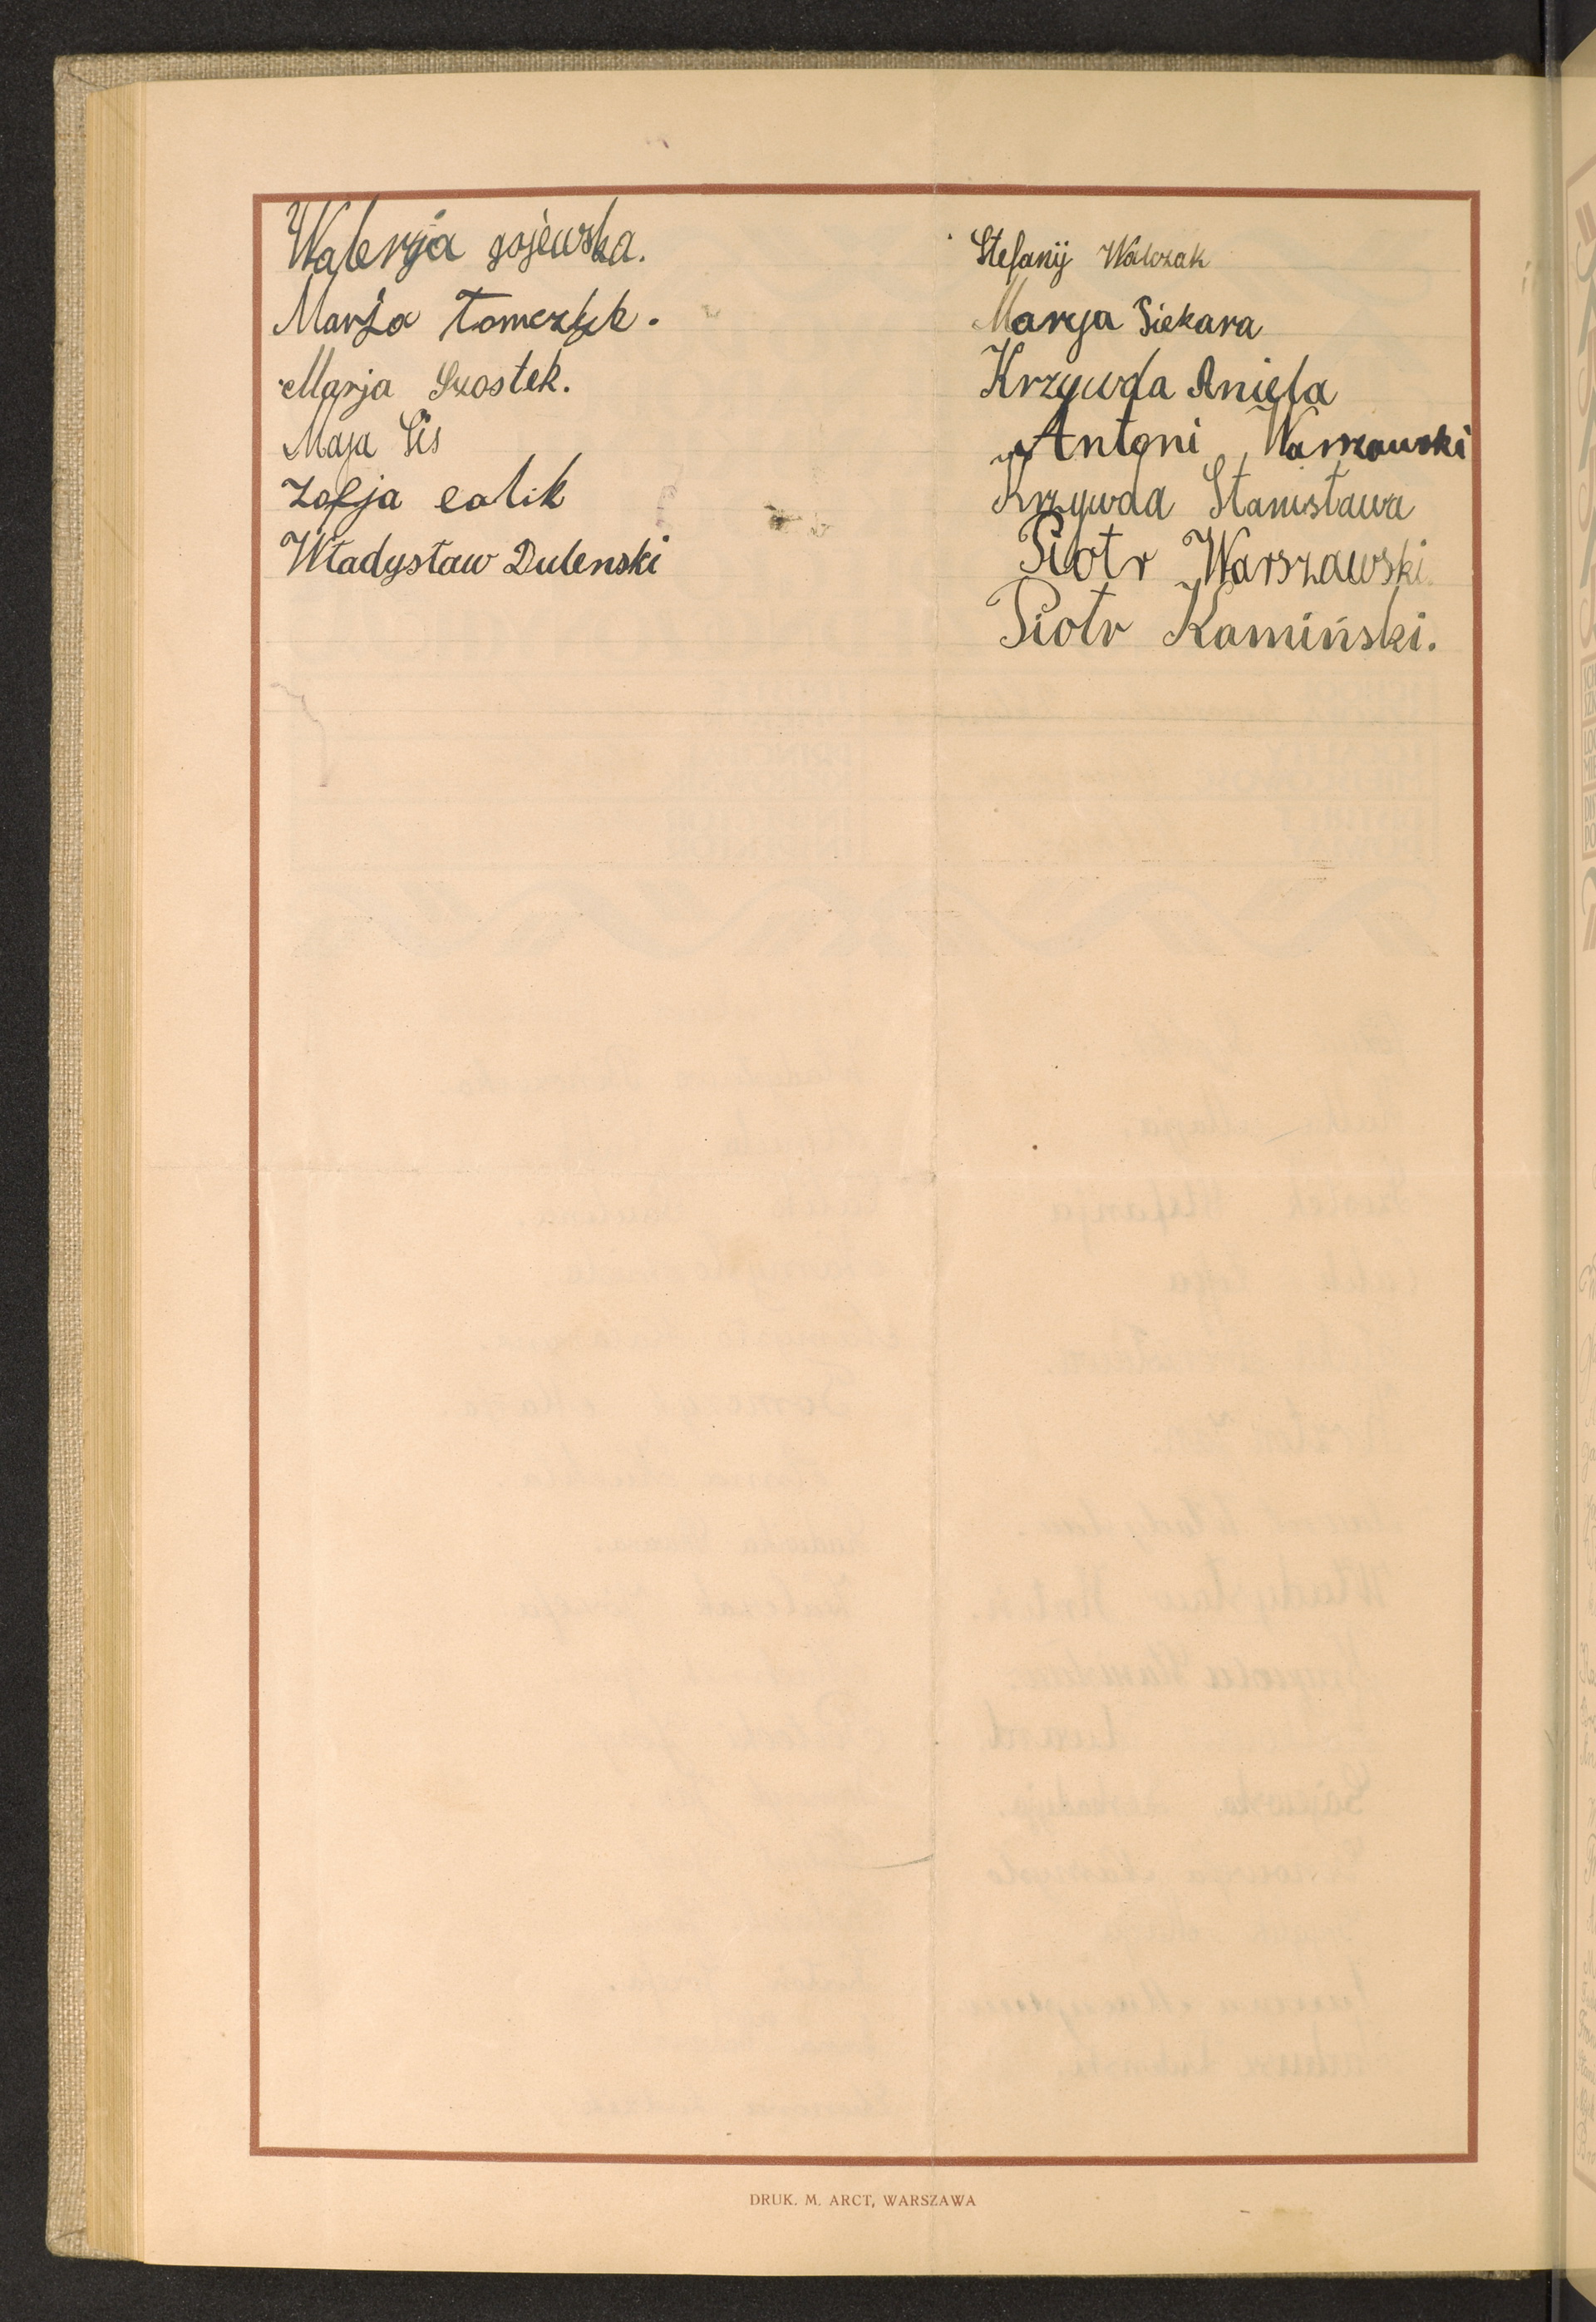 Walerja gojewska.
Marja Tomczyk.
Marja Szostek.
Maja Lis
Zofja calik
Władysław Dulenski
Stefanij Walczak
Marya Siekara
Krzywda Aniela
Antoni Warszawski
Krzywda Stanisława
Piotr Warszawski.
Piotr Kamiński.
DRUK. M. ARCT, WARSZAWA